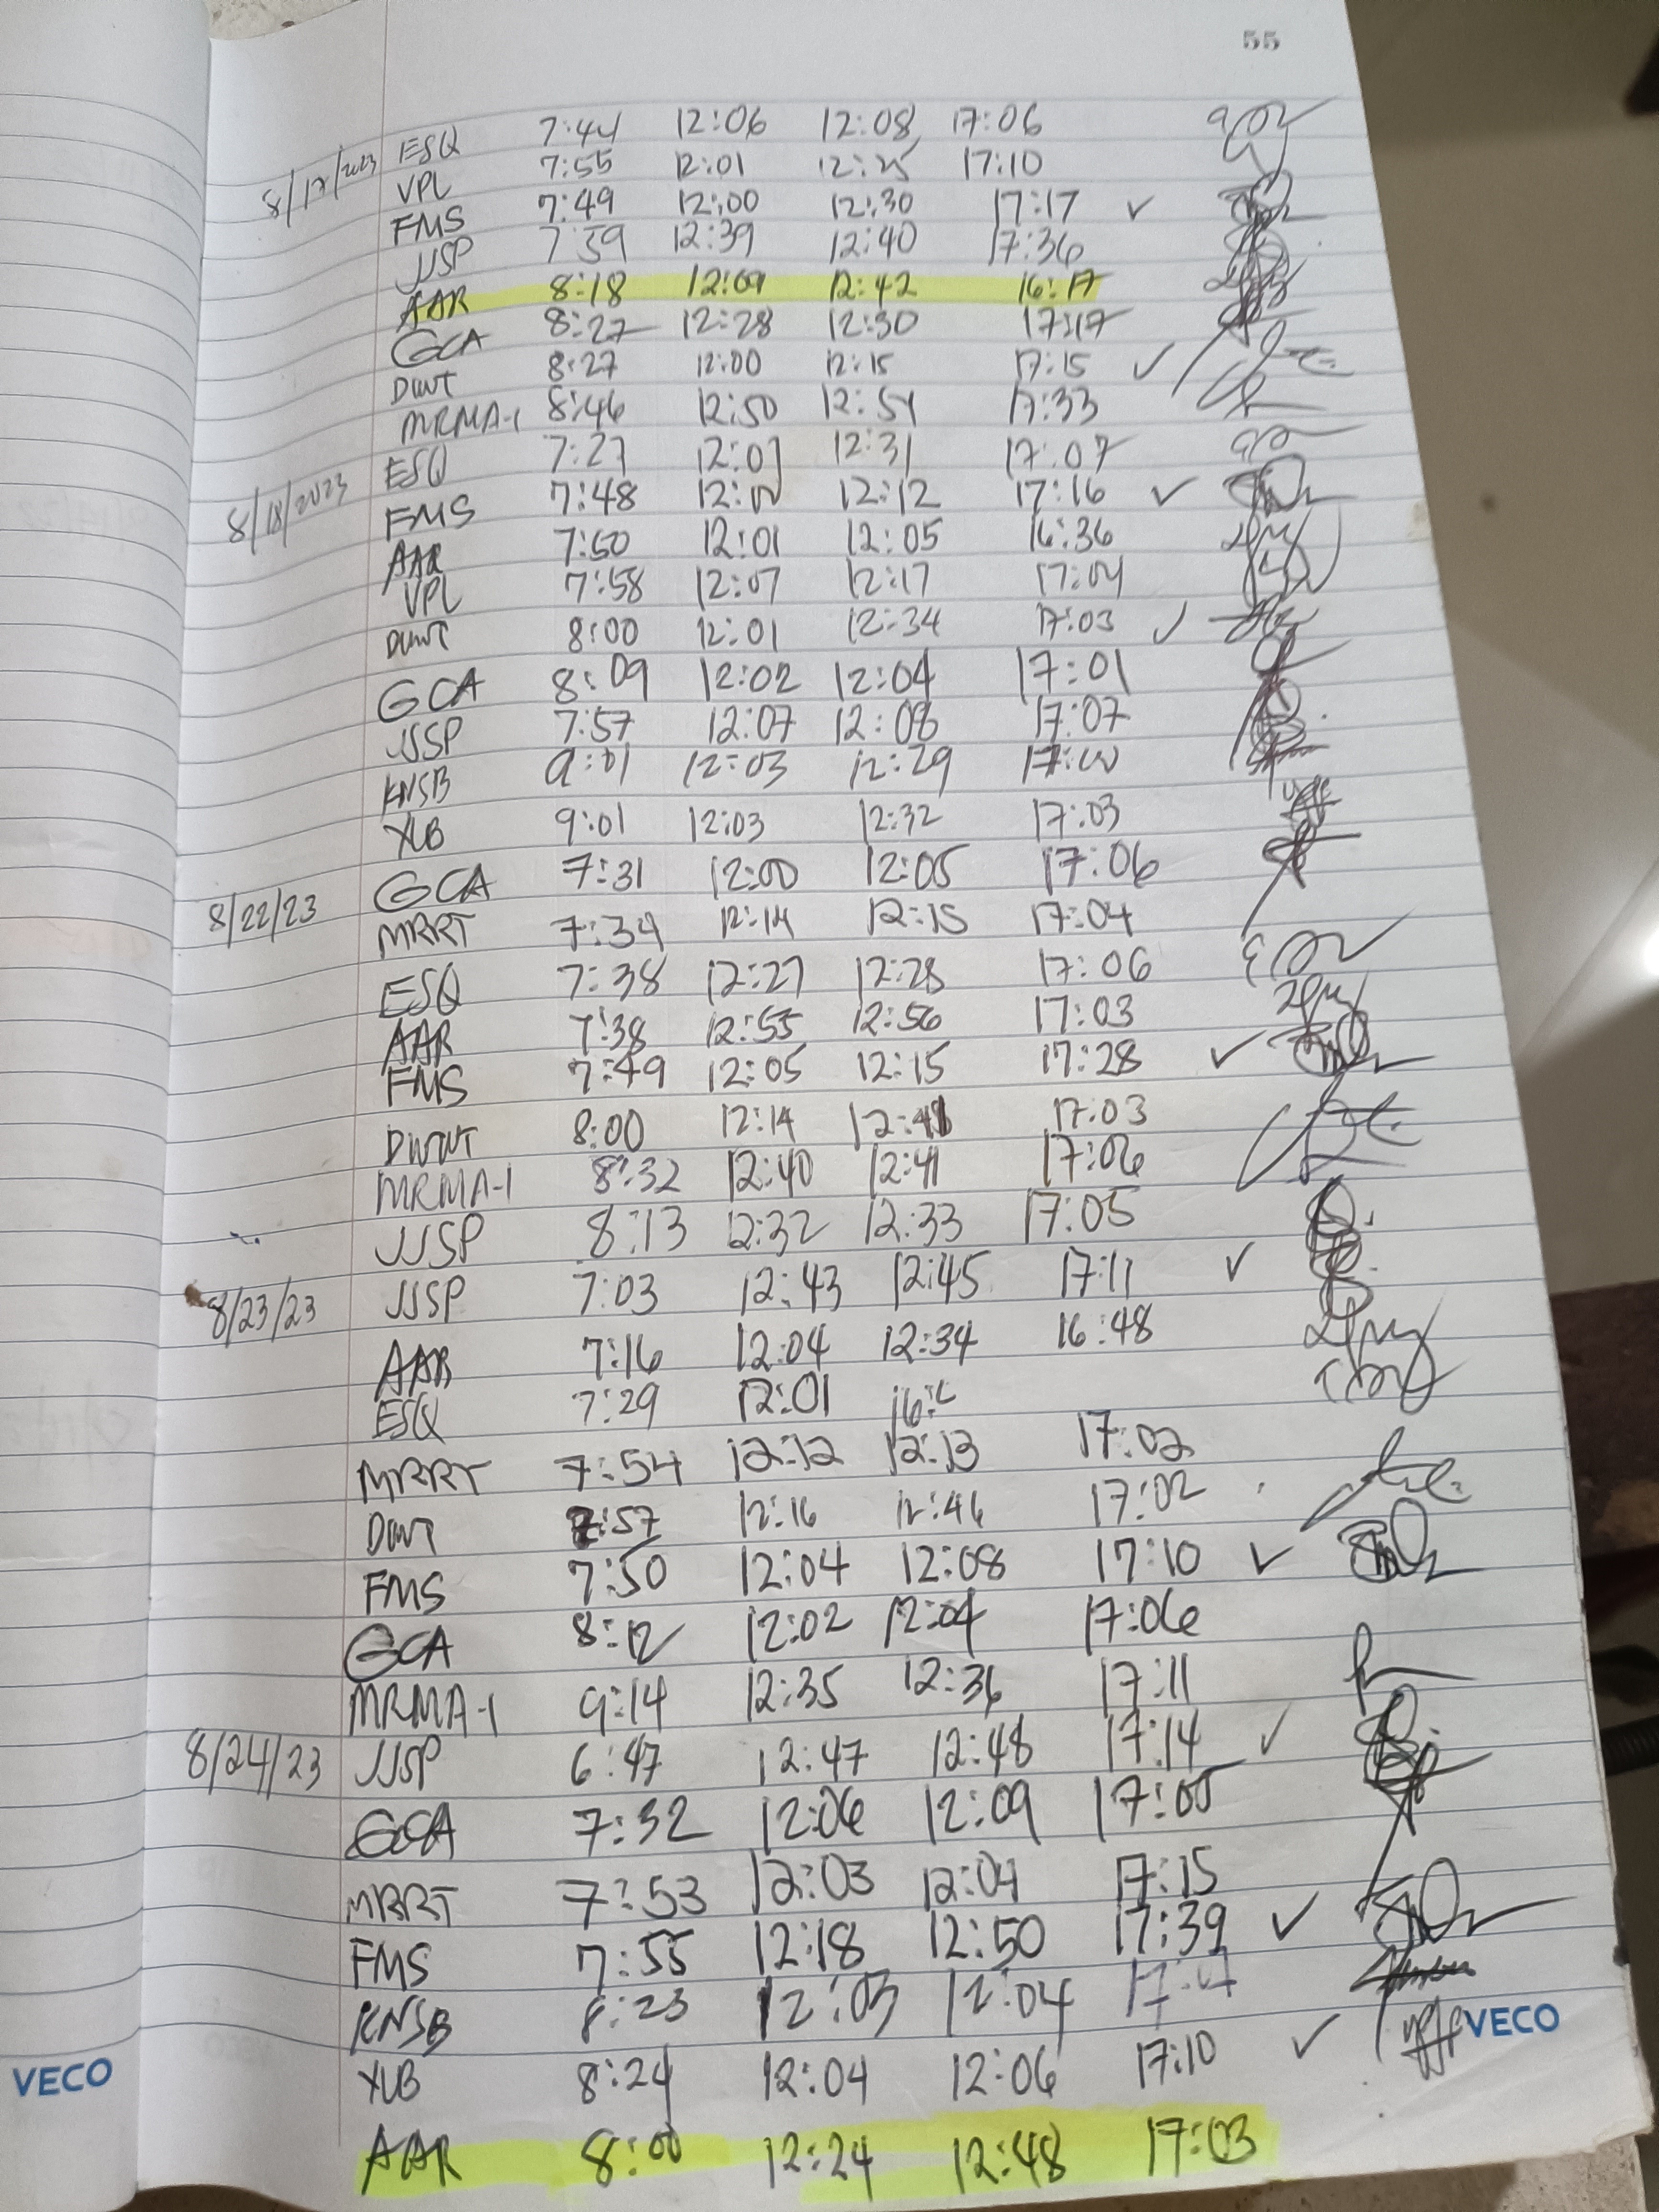 55
8/17/2023 ESQ 7:44 12:06 12:08 17:06
VPL 7:55 12:01 12:25 17:10
FMS 7:49 12:00 12:30 17:17 ✓
JJSP 7:39 12:39 12:40 17:36
AAR 8:18 12:09 12:42 16:17
GCA 8:27 12:28 12:30 17:17
DWT 8:27 12:00 12:15 17:15 ✓
MRMA-1 8:46 12:50 12:51 17:33
8/18/2023 ESQ 7:27 12:07 12:31 17:07
FMS 7:48 12:10 12:12 17:16 ✓
AAR 7:50 12:01 12:05 16:36
VPL 7:58 12:07 12:17 17:04
DWT 8:00 12:01 12:34 17:03 ✓
GCA 8:09 12:02 12:04 17:01
JJSP 7:57 12:07 12:08 17:07
KNSB 9:01 12:03 12:29 17:00
XUB 9:01 12:03 12:32 17:03
8/22/23 GCA 7:31 12:00 12:05 17:06
MRRT 7:34 12:14 12:15 17:04
ESQ 7:38 12:27 12:28 17:06
AAR 7:38 12:55 12:56 17:03
FMS 7:49 12:05 12:15 17:28 ✓
DWT 8:00 12:14 12:41 17:03
MRMA-1 8:32 12:40 12:41 17:06
JJSP 8:13 12:32 12:33 17:05
8/23/23 JJSP 7:03 12:43 12:45 17:11 ✓
AAR 7:16 12:04 12:34 16:48
ESQ 7:29 12:01
MRRT 7:54 12:12 12:13 17:02
DWT 7:57 12:16 12:46 17:02
FMS 7:50 12:04 12:08 17:10 ✓
GCA 8:12 12:02 12:04 17:06
MRMA-1 9:14 12:35 12:36 17:11
8/24/23 JJSP 6:47 12:47 12:48 17:14 ✓
GCA 7:32 12:06 12:09 17:05
MRRT 7:53 12:03 12:04 17:15
FMS 7:55 12:18 12:50 17:39 ✓
KNSB 8:23 12:03 12:04
XUB 8:24 12:04 12:06 17:10 ✓
AAR 8:00 12:24 12:48 17:03
VECO
VECO